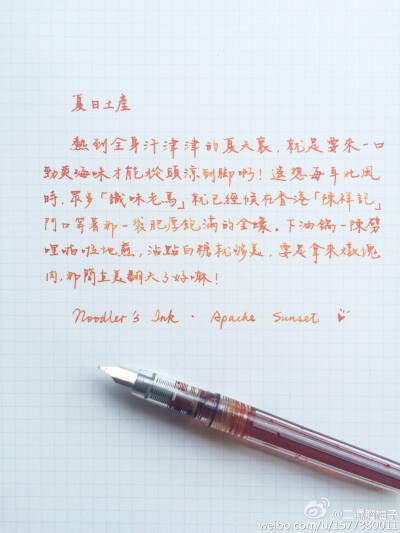 夏日土產
熱到全身汗津津的夏天裏，就是要來一口
勁爽海味才能從頭涼到脚啊！遙想每年此風
時，眾多「識味老馬」就已經候在香港「陳祥記」
門口等著那一袋肥厚飽滿的金蠔。下油鍋一陣劈
哩啪啦地煎，沾點白糖就够美，要是拿來燉塊
肉，那簡直美翻天了好嘛！
Noodler's Ink · Apache Sunset
@二端醉柚子
weibo.com/u/1577380011